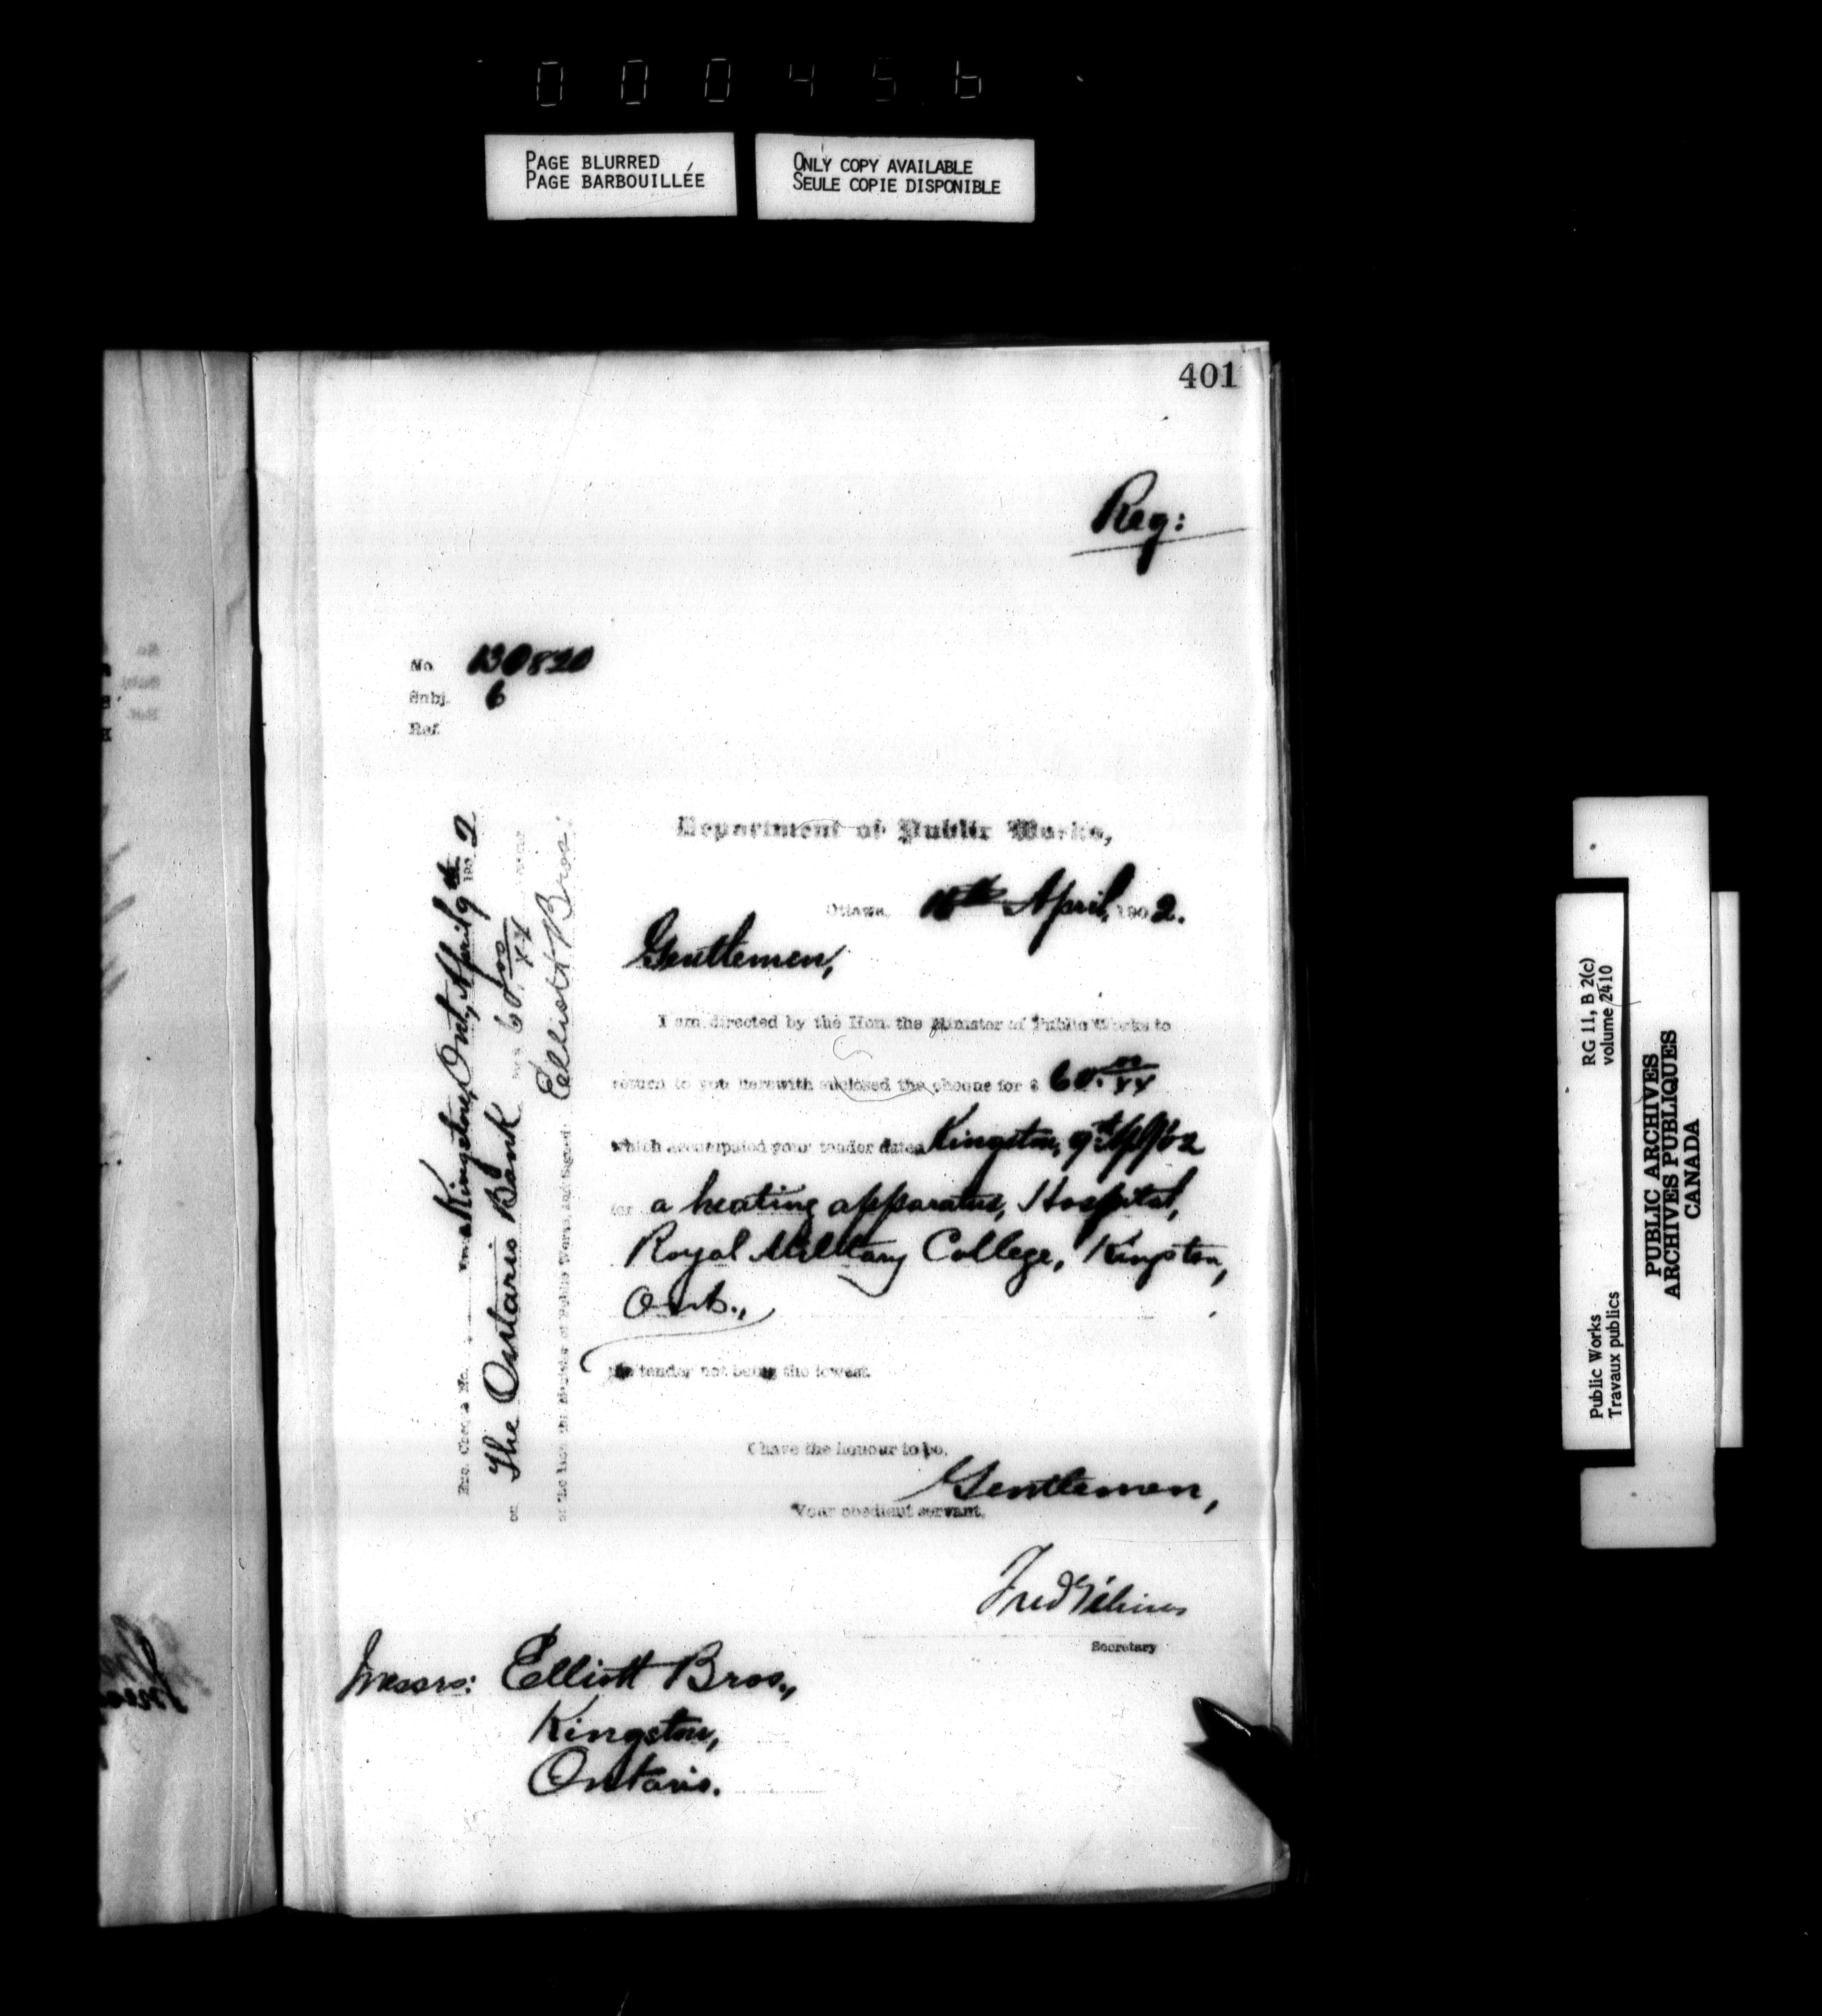 000456
PAGE BLURRED
PAGE BARBOUILLÉE
ONLY COPY AVAILABLE
SEULE COPIE DISPONIBLE
401
Reg:
No. 130820
Subj. 6
Ref.
Department of Public Works,
Ottawa, April, 1902.
Gentlemen,
I am directed by the Hon. the Minister of Public Works to
return to you herewith enclosed the cheque for $ 60.00/xx
which accompanied your tender dated Kingston, 9th Ap/02
for a heating apparatus, Hospital,
Royal Military College, Kingston,
Ont.,
the tender not being the lowest.
I have the honour to be,
Gentlemen,
Your obedient servant,
Secretary
Messrs: Elliott Bros.,
Kingston,
Ontario.
Enc. Cheque No. Kingston, Ont, April 9th 1902
on The Ontario Bank for $ 60.00/xx
of the Hon. the Minister of Public Works, and signed: Elliott Bros:
Public Works
Travaux publics
RG 11, B 2(c)
volume 2410
PUBLIC ARCHIVES
ARCHIVES PUBLIQUES
CANADA